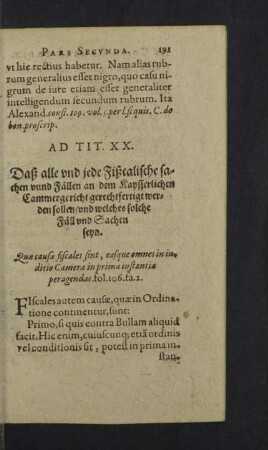 PARS SECVNDA. 191
vt hic rectius habetur. Nam alias rub-
rum generalius esset nigro, quo casu ni-
grum de iure etiam esset generaliter
intelligendum secundum rubrum. Ita
Alexand. consi. 109. vol. 1. per l. si quis. C. de
bon. proscrip.
AD TIT. XX.
Daß alle vnd jede Fißcalische sa-
chen vnnd Fällen an dem Kayserlichen
Cammergericht gerechtfertigt wer-
den sollen/ vnd welches solche
Fäll vnd Sachen
seyn.
Quæ causæ fiscales sint, easque omnes in iu-
ditio Cameræ in prima instantia
peragendas. fol. 106. fa. 2.
FIscales autem causæ, quæ in Ordina-
tione continentur, sunt:
Primo, si quis contra Bullam aliquid
facit. Hic enim, cuiuscunq; etiā ordinis
vel conditionis sit, potest in prima in-
stan-